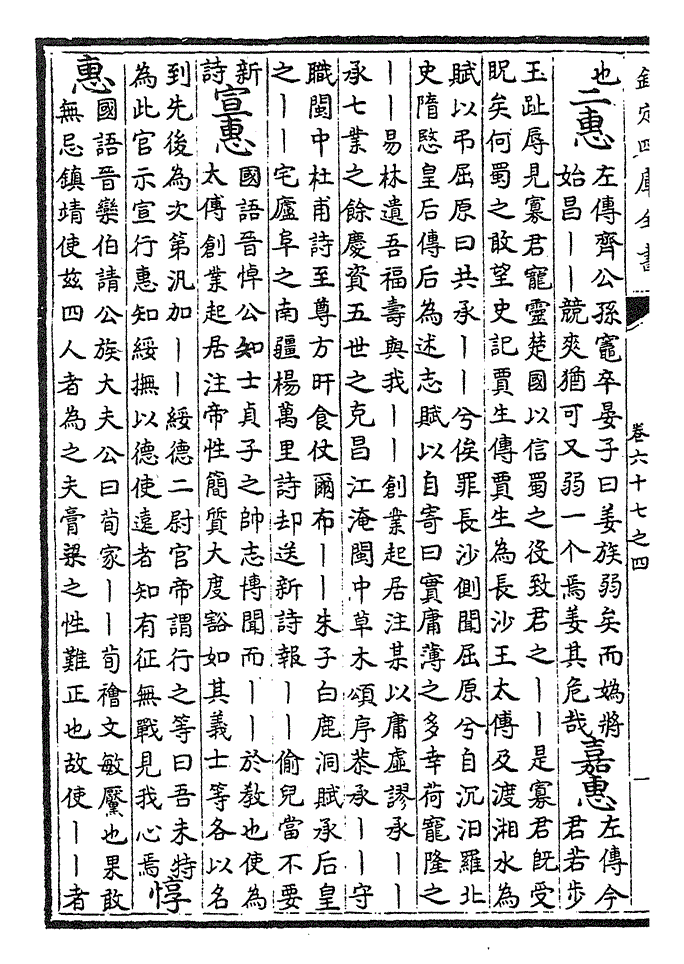 欽定四庫全書
卷六十七之四
一
也
二惠
左傳齊公孫竈卒晏子曰姜族弱矣而媯將
始昌丨丨競爽猶可又弱一个焉姜其危哉
嘉惠
左傳今
君若步
玉趾辱見寡君寵靈楚國以信蜀之役致君之丨丨是寡君既受
貺矣何蜀之敢望史記賈生傳賈生為長沙王太傅及渡湘水為
賦以弔屈原曰共承丨丨兮俟罪長沙側聞屈原兮自沉汨羅北
史隋愍皇后傳后為述志賦以自寄曰實庸薄之多幸荷寵隆之
丨丨易林遺吾福壽與我丨丨創業起居注某以庸虛謬承丨丨
承七業之餘慶資五世之克昌江淹閩中草木頌序恭承丨丨守
職閩中杜甫詩至尊方旰食仗爾布丨丨朱子白鹿洞賦承后皇
之丨丨宅廬阜之南疆楊萬里詩却送新詩報丨丨偷兒當不要
新
詩
宣惠
國語晉悼公知士貞子之帥志博聞而丨丨於教也使為
太傅創業起居注帝性簡質大度豁如其義士等各以名
到先後為次第汎加丨丨綏德二尉官帝謂行之等曰吾未特
為此官示宣行惠知綏撫以德使遠者知有征無戰見我心焉
惇
惠
國語晉欒伯請公族大夫公曰荀家丨丨荀禬文敏黶也果敢
無忌鎮靖使玆四人者為之夫膏粱之性難正也故使丨丨者